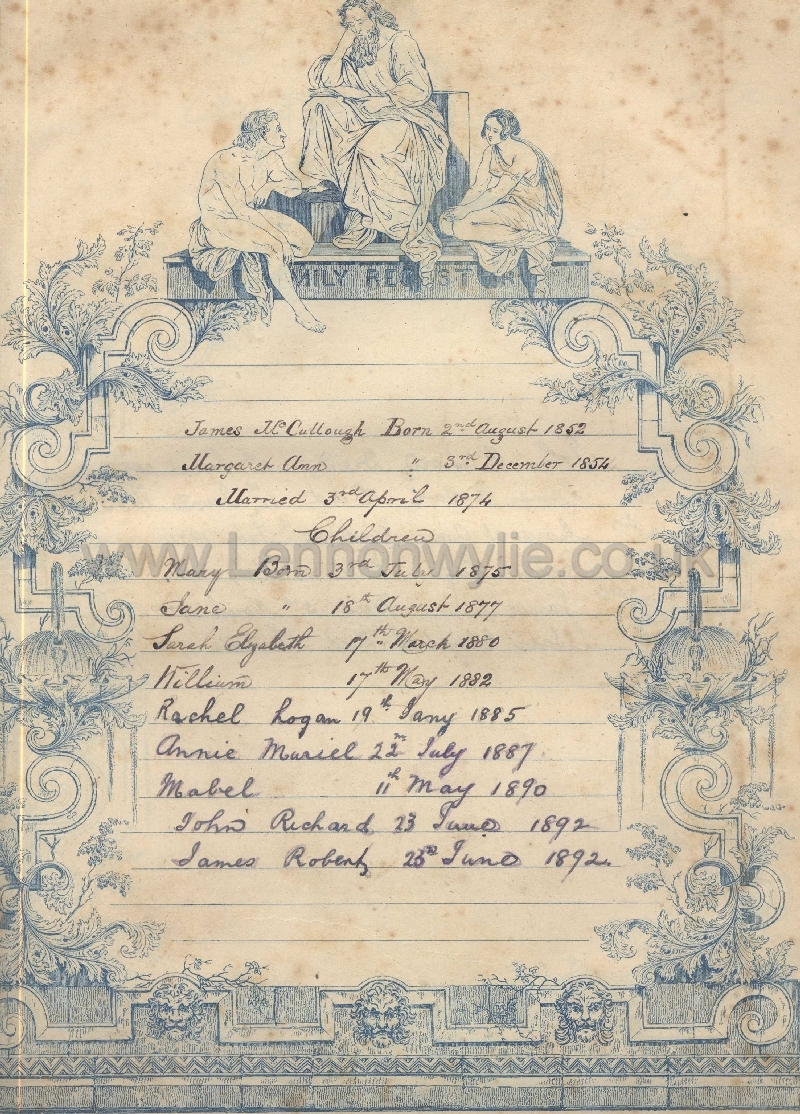 FAMILY REGISTER
James McCullough Born 2nd August 1852
Margaret Ann " 3rd December 1854
Married 3rd April 1874
Children
www.Lennonwylie.co.uk
Mary Born 3rd July 1875
Jane " 18th August 1877
Sarah Elyabeth 17th March 1880
William 17th May 1882
Rachel Logan 19th Jany 1885
Annie Muriel 22n July 1887
Mabel 11th May 1890
John Richard 23 June 1892
James Robert June 1892.